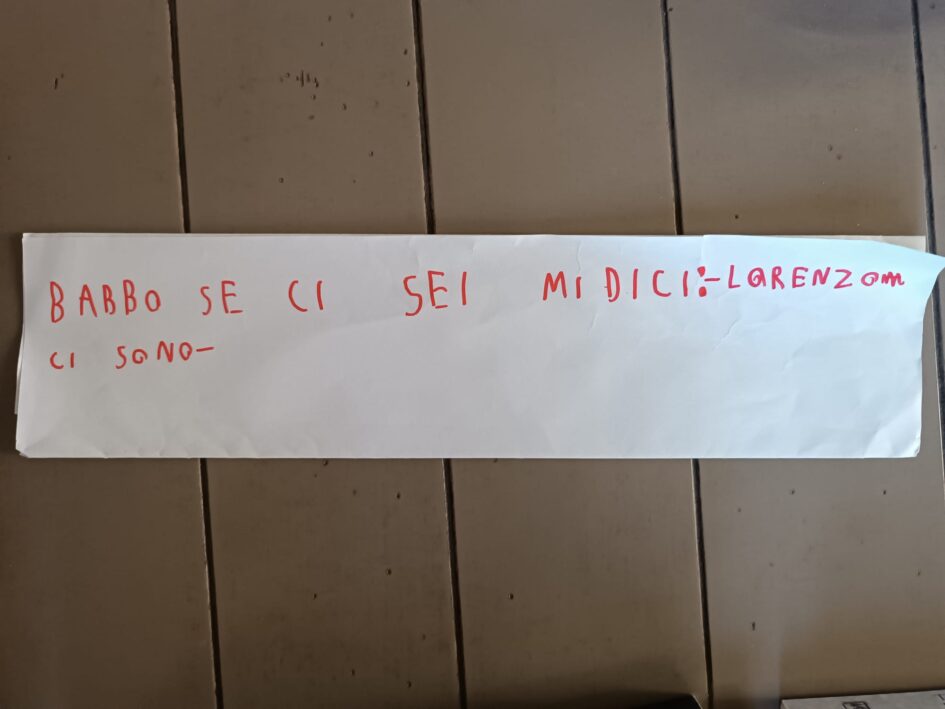 BABBO SE CI SEI MI DICI:-LORENZO
CI SONO-